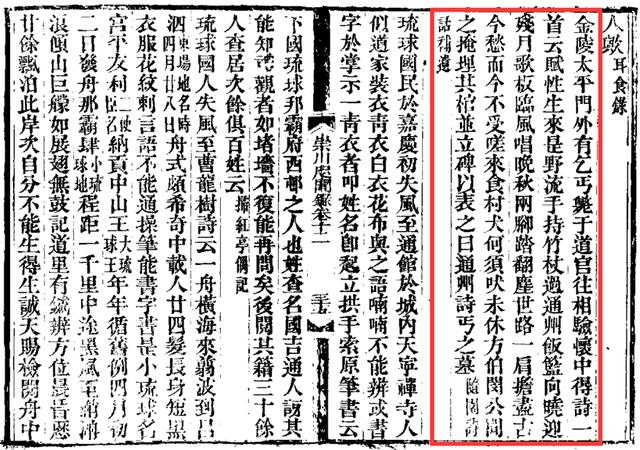 人毀耳食錄
金陵太平門外有乞丐斃于道官往相驗懷中得詩一
首云賦性生來是野流手持竹杖過通州飯籃向曉迎
殘月歌板臨風唱晚秋兩腳踏翻塵世路一肩擔盡古
今愁而今不受嗟來食村犬何須吠未休方伯閔公聞
之掩埋其棺並立碑以表之曰通州詩丐之墓隨園詩
話補遺
琉球國民於嘉慶初失風至通館於城內天寧禪寺人
似道家裝衣青衣白衣花布與之語喃喃不能辨武書
字於掌示一青衣者叩姓名卽起立拱手索原筆書云
崇川咫聞錄卷十一
下國琉球邦霸府西郵之人也姓查名國吉通人訝其
能知詩觀者如堵墻不復能再問矣後閱其籍三十餘
人查居次餘俱百姓云摘紅亭偶記
琉球國人失風至曹龍樹詩云一舟橫海來翦波到呂
泗東場地名時四月廿八日舟式頗希奇中載人廿四髮長身短黑
衣服花紋刺言語不能通操筆能書字書是小琉球名
宮平友利納貢中山王大琉球王年年循舊例四月初
二日發舟那霸肆小琉球地程距一千里中途黑風至
浪傾山巨艨如展翅無鼓記道里有鍼辨方位晨昏歷
廿餘飄泊此岸次自分不能生得生誠天賜檢閱舟中